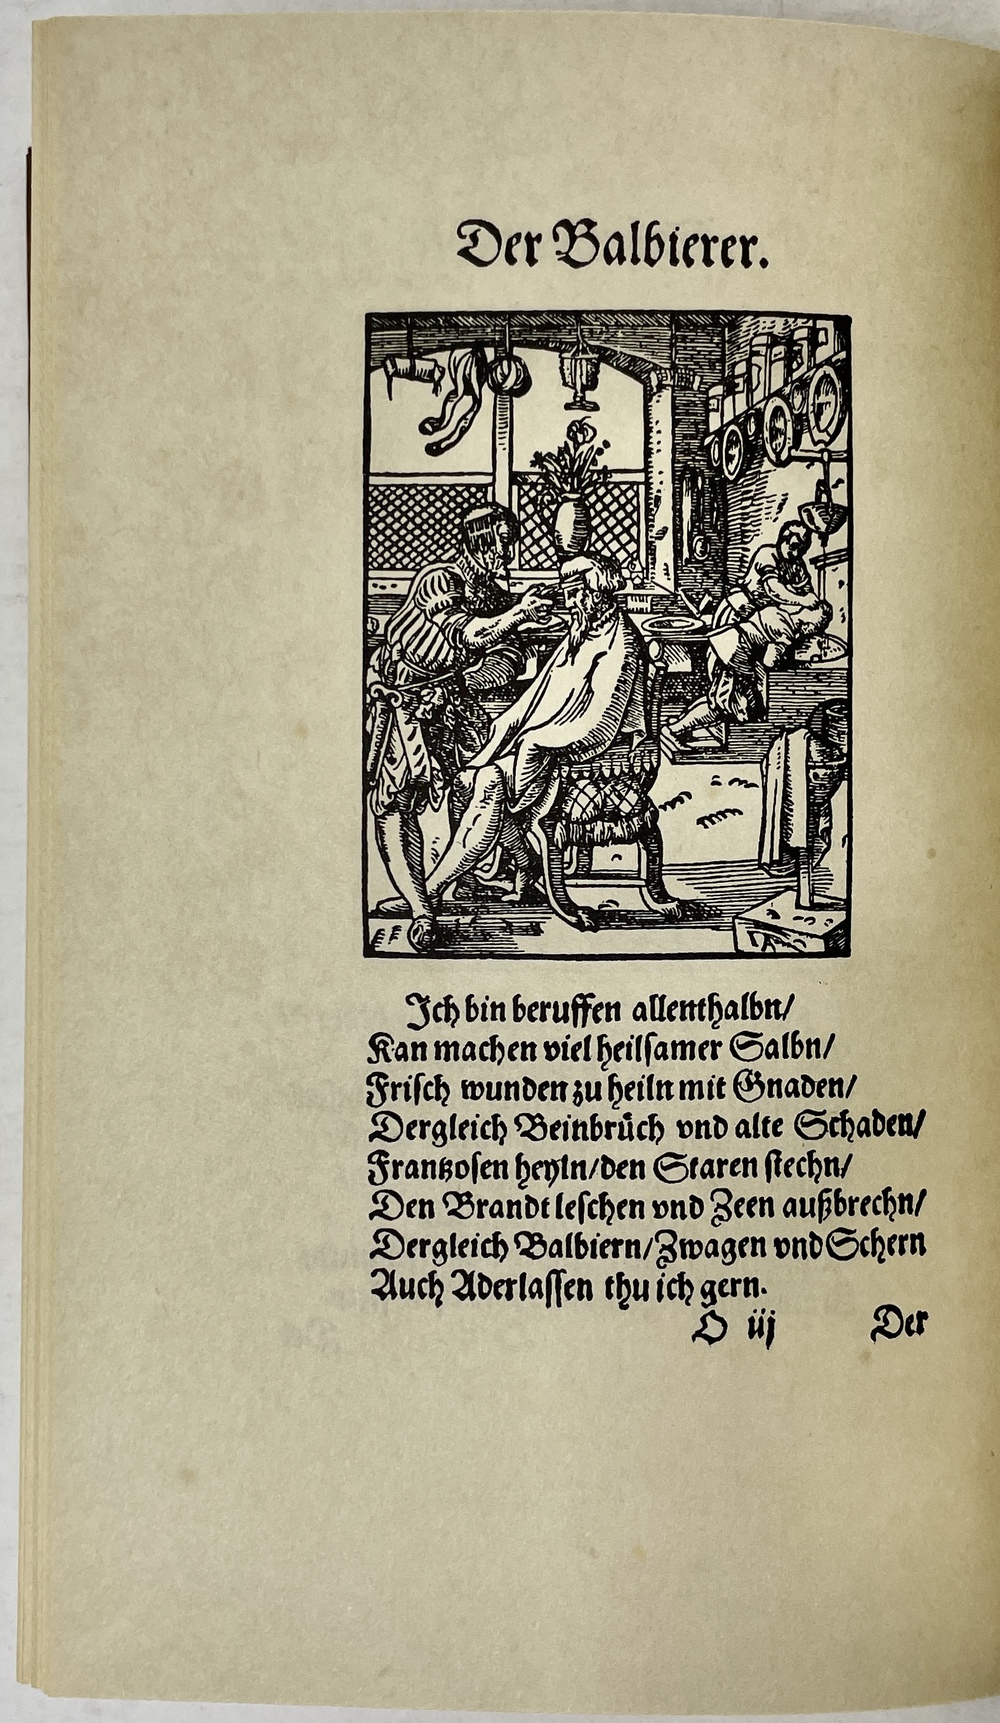 Der Balbierer.
Ich bin beruffen allenthalbn/
Kan machen viel heilsamer Salbn/
Frisch wunden zu heiln mit Gnaden/
Dergleich Beinbrüch vnd alte Schaden/
Frantzosen heyln/den Staren stechn/
Den Brandt leschen vnd Zeen außbrechn/
Dergleich Balbiern/Zwagen vnd Schern
Auch Aderlassen thu ich gern.
O iij Der